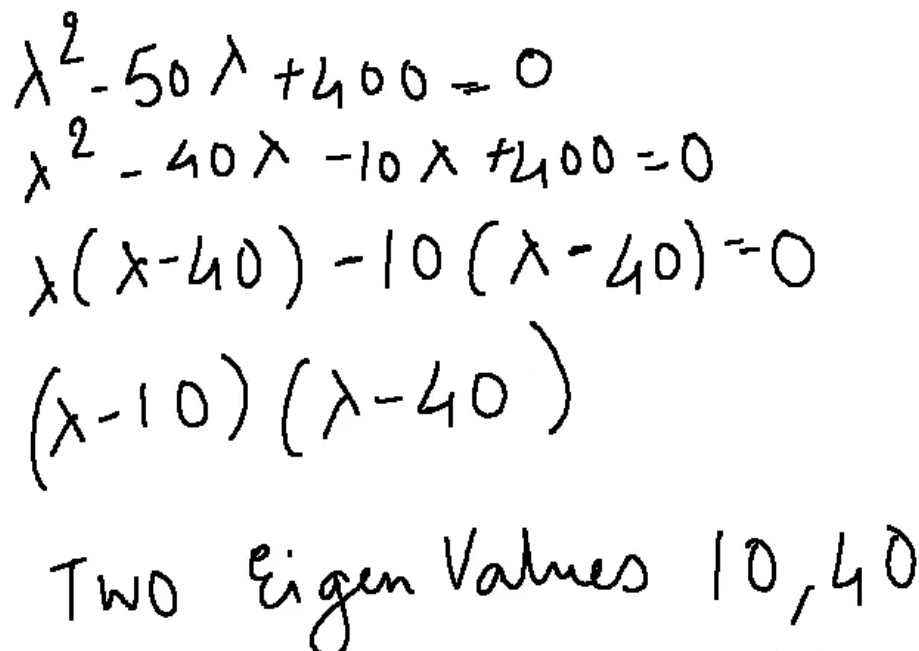 λ² - 50λ + 400 = 0
λ² - 40λ - 10λ + 400 = 0
λ(λ-40) - 10(λ-40) = 0
(λ-10)(λ-40)
Two Eigen Values 10, 40